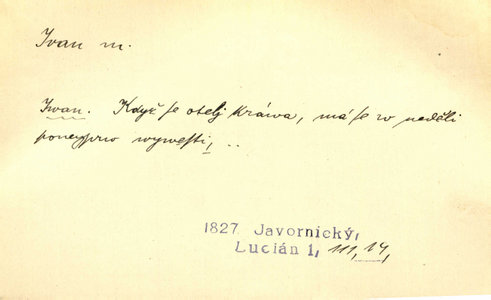 Ivan m.
Iwan. Když se otelj kráwa, má se w neděli
ponejprw wywesti, ..
1827 Javornický,
Lucián 1, III, 14,